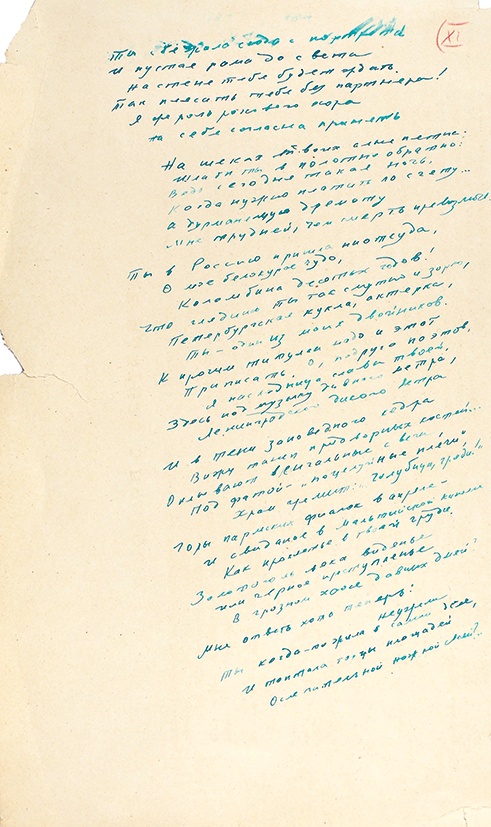 XI
Ты сбежала сюда с портрета
И пустая рама до света
На стене тебя будет ждать.
Так плясать тебе без партнера!
Я же роль рокового хора
на себя согласна принять
На щеках твоих алые пятна:
Шла бы ты в полотно обратно:
Ведь сегодня такая ночь,
Когда нужно платить по счету...
А дурманящую дремоту
Мне трудней, чем смерть превозмочь.
Ты в Россию пришла ниоткуда,
О мое белокурое чудо,
Коломбина десятых годов!
Что глядишь ты так смутно и зорко,
Петербургская кукла, актерка,
Ты – один из моих двойников.
К прочим титулам надо и этот
Приписать. О, подруга поэтов,
Я наследница славы твоей,
Здесь под музыку дивного мэтра,
Ленинградского дикого ветра
И в тени заповедного кедра
Вижу танец придворных костей...
Оплывают венчальные свечи,
Под фатой "поцелуйные плечи",
Храм гремит: "Голубица, гряди!"
Горы пармских фиалок в апреле –
И свиданье в Мальтийской капелле
Как проклятье в твоей груди.
Золотого ль века виденье
Или черное преступленье
В грозном хаосе давних дней?
Мне ответь хоть теперь:
неужели
Ты когда-то жила в самом деле,
И топтала торцы площадей
Ослепительной ножкой своей?